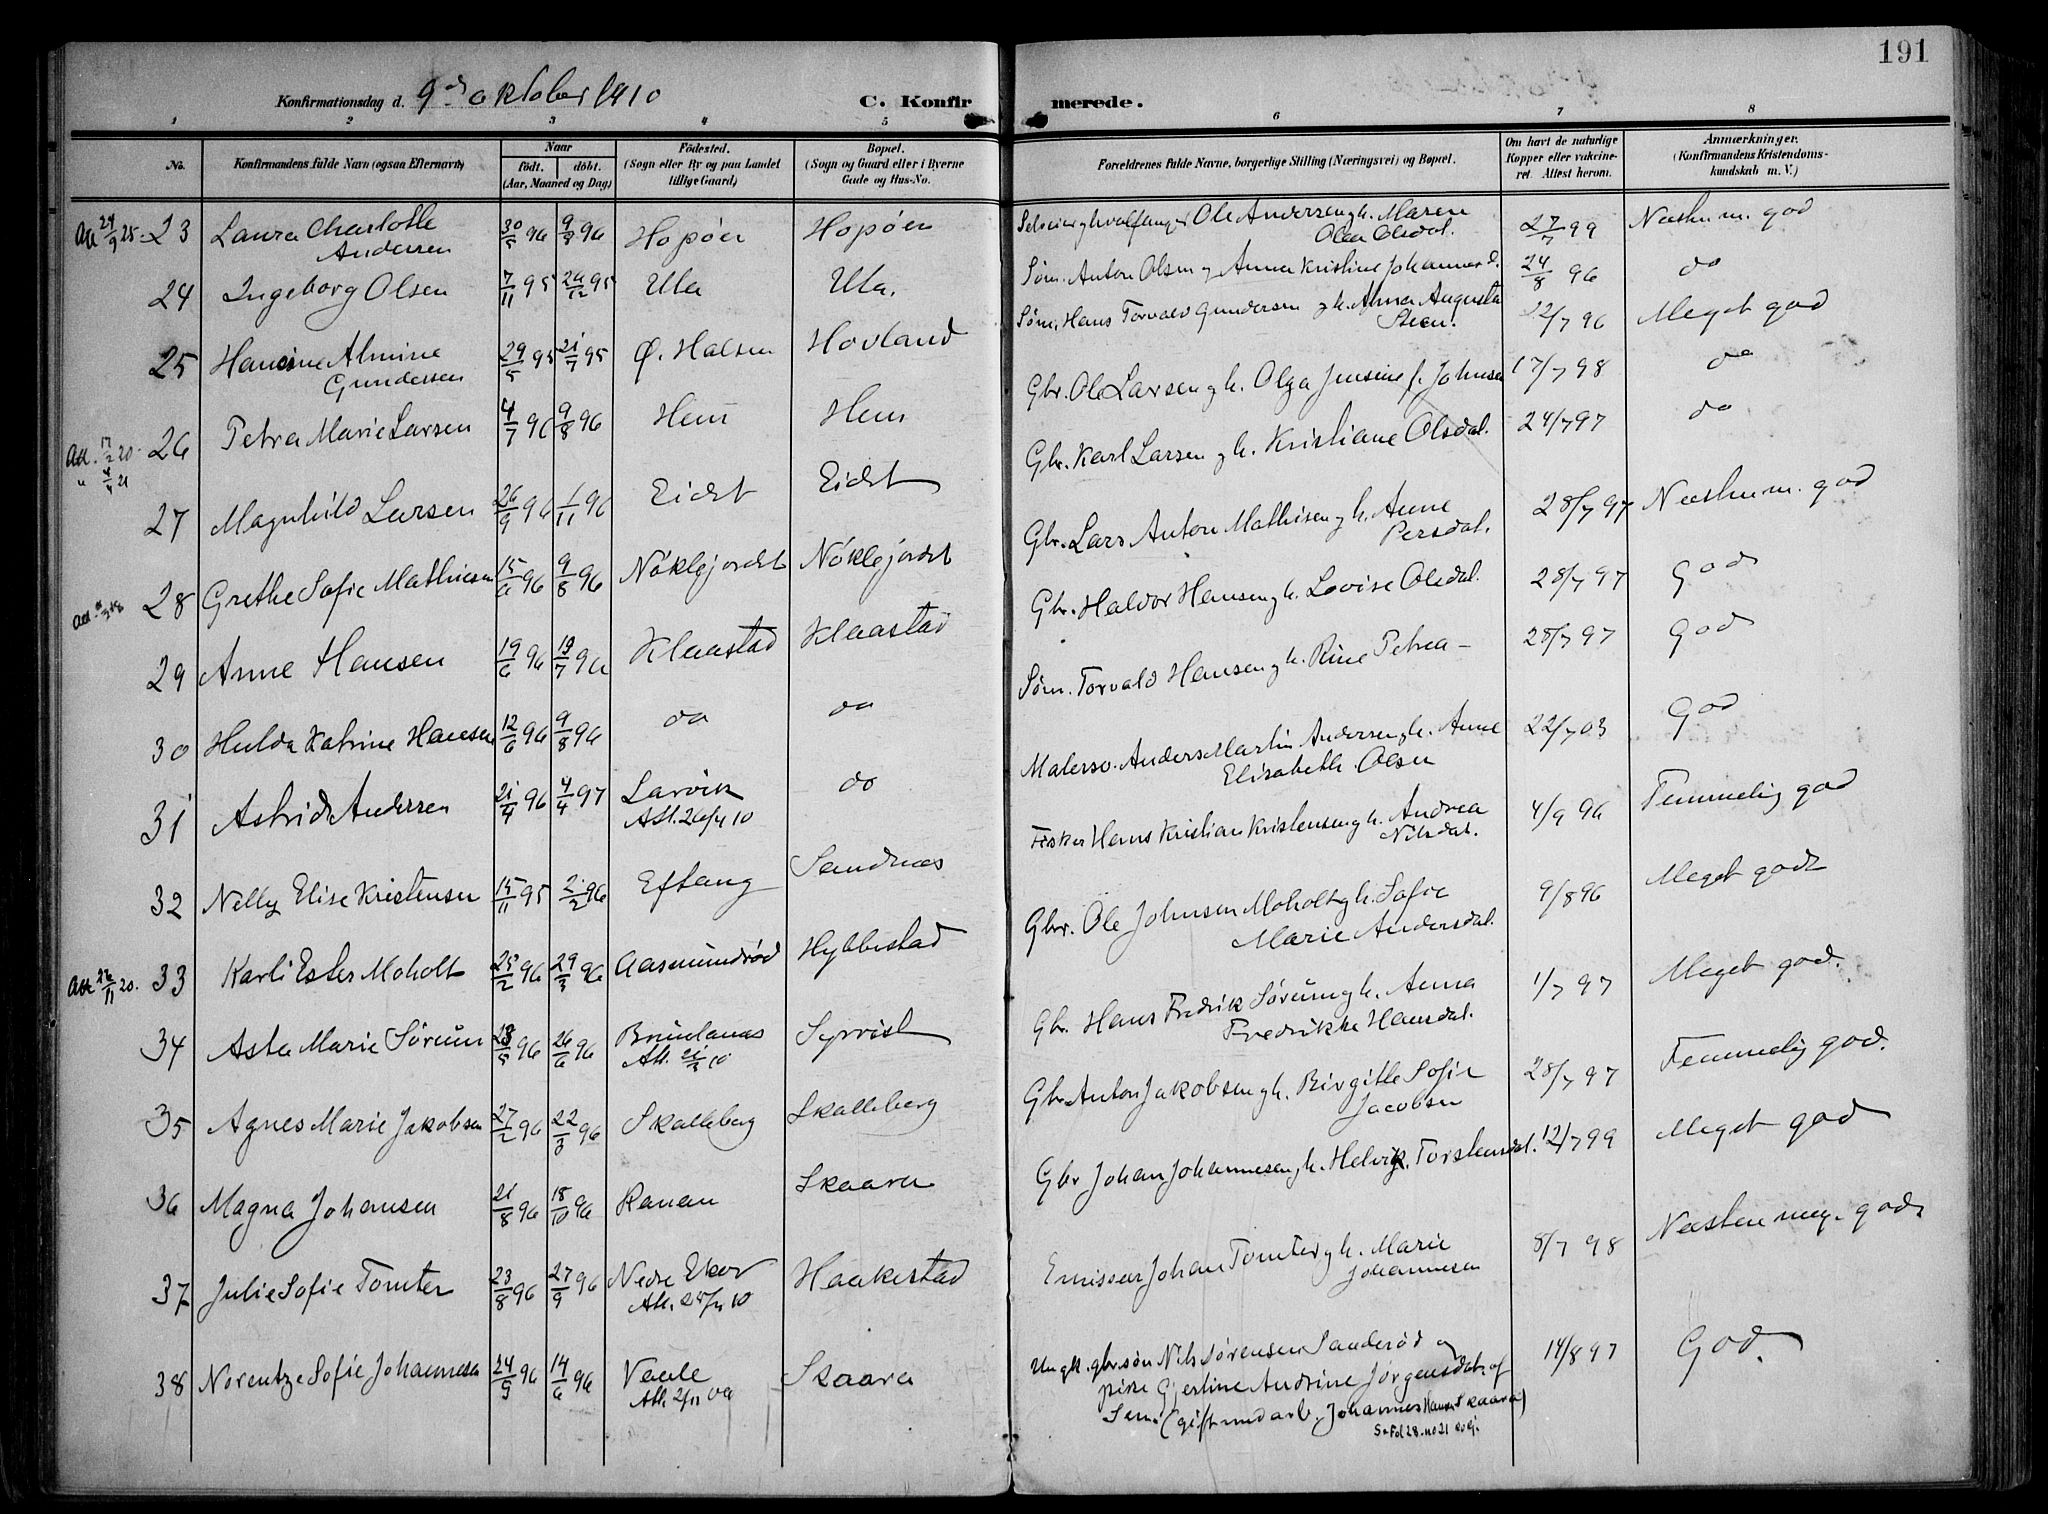 191
Konfirmationsdag d. 9de oktober 1910
C. Konfirmerede.
1 2 3 4 5 6 7 8
No. Konfirmandens fulde Navn (ogsaa Efternavn) Naar født. døbt. (Aar, Maaned og Dag) Födested. (Sogn eller By og paa Landet tillige Gaard) Bopæl. (Sogn og Gaard eller i Byerne Gade og Hus-No. Forældrenes fulde Navne, borgerlige Stilling (Næringsvei) og Bopæl. Om havt de naturlige Kopper eller vakcineret. Attest herom. Anmærkninger. (Konfirmandens Kristendomskundskab m. V.)
Att 29/9 25. 23 Laura Charlotte Andersen 30/5 96 9/8 96 Hopøen Hopøen Selveier g hvalfanger Ole Andersen g h. Maren Olea Olsdal. 27/7 99 Næsten m. god
24 Ingeborg Olsen 7/11 95 26/12 95 Ula Ula. Søm. Anton Olsen g Anna Kristine Johannesd. 24/8 96 do
25 Hansine Almine Gundersen 29/5 95 21/7 95 Ø. Halsen Hovland Søm. Hans Torvald Gundersen g h. Anna Augusta Steen. 22/7 96 Meget god
26 Petra Marie Larsen 4/7 96 9/8 96 Hem Hem Gbr. Ole Larsen g h. Olga Jensine f. Johnsen 17/7 98 do
Att. 17/2 20.
" 4/4 21
27 Magnhild Larsen 26/9 96 1/11 96 Eidet Eidet Gbr. Karl Larsen g h. Kristiane Olsdal. 24/7 97 do
28 Grethe Sofie Mathisen 15/6 96 9/8 96 Nøklejordet Nøklejordet Gbr. Lars Anton Mathisen g h. Anne Persdal. 28/7 97 Næsten m. god
29 Anne Hansen 19/6 96 19/7 96 Klaastad Klaastad Gbr. Haldor Hansen g h. Lovise Olsdal. 28/7 97 God
30 Hulda Katrine Hansen 12/6 96 9/8 96 do do Søm. Torvald Hansen g h. Rine Petrea – 28/7 97 God
31 Astrid Andersen 21/4 96 4/4 97 Larvik Att. 26/4 10 do Malersv. Anders Martin Andersen g h. Anne Elisabeth Olsen 22/7 03 God
32 Nelly Elise Kristensen 15/11 95 2/2 96 Eftang Sandnæs Fisker Hans Kristian Kristensen g h. Andrea Nilsdal. 4/9 96 Temmelig god
33 Karli Ester Moholt 25/2 96 29/3 96 Aasmundrød Hybbestad Gbr. Ole Johnsen Moholt g h. Sofie Marie Andersdal. 9/8 96 Meget god
Att 26/11 20.
34 Asta Marie Sørum 28/5 96 26/6 96 Brunlanæs Att. 21/3 10 Syrrist Gbr. Hans Fredrik Sørum g h. Anna Fredrikke Hansdal. 1/7 97 Meget god.
35 Agnes Marie Jakobsen 27/2 96 22/3 96 Skalleberg Skalleberg Gbr Anton Jakobsen g h. Birgitte Sofie Jacobsen 28/7 97 Temmelig god.
36 Magna Johansen 21/8 96 18/10 96 Ranan Skaara Gbr Johan Johannesen g h. Helvik. Torstensdal. 12/7 99 Meget god
37 Julie Sofie Tomter 23/8 96 27/9 96 Nedre Eker Att. 25/4 10 Haakestad Emissær Johan Tomter g h. Marie Johannesen 8/7 98 Næsten meg. god
38 Norentze Sofie Johannesen 24/5 96 14/6 96 Vaale Att. 2/11 09 Skaara Ungk. gbr.søn Nils Sørensen Sanderød og pike Gjertine Andrine Jørgensdal. af Sem. (gift med arb. Johannes Hansen Skaara) 14/8 97 God.